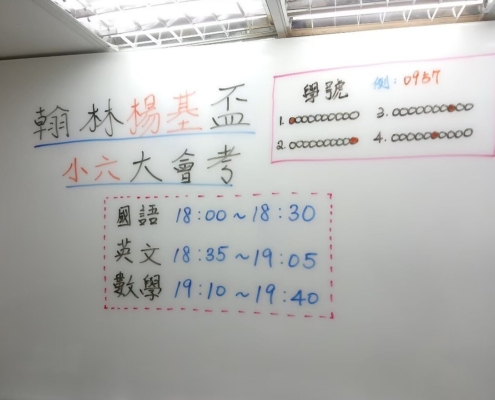 翰林楊基盃
小六大會考
學號 例：0957
1.
2.
3.
4.
國語 18:00～18:30
英文 18:35～19:05
數學 19:10～19:40